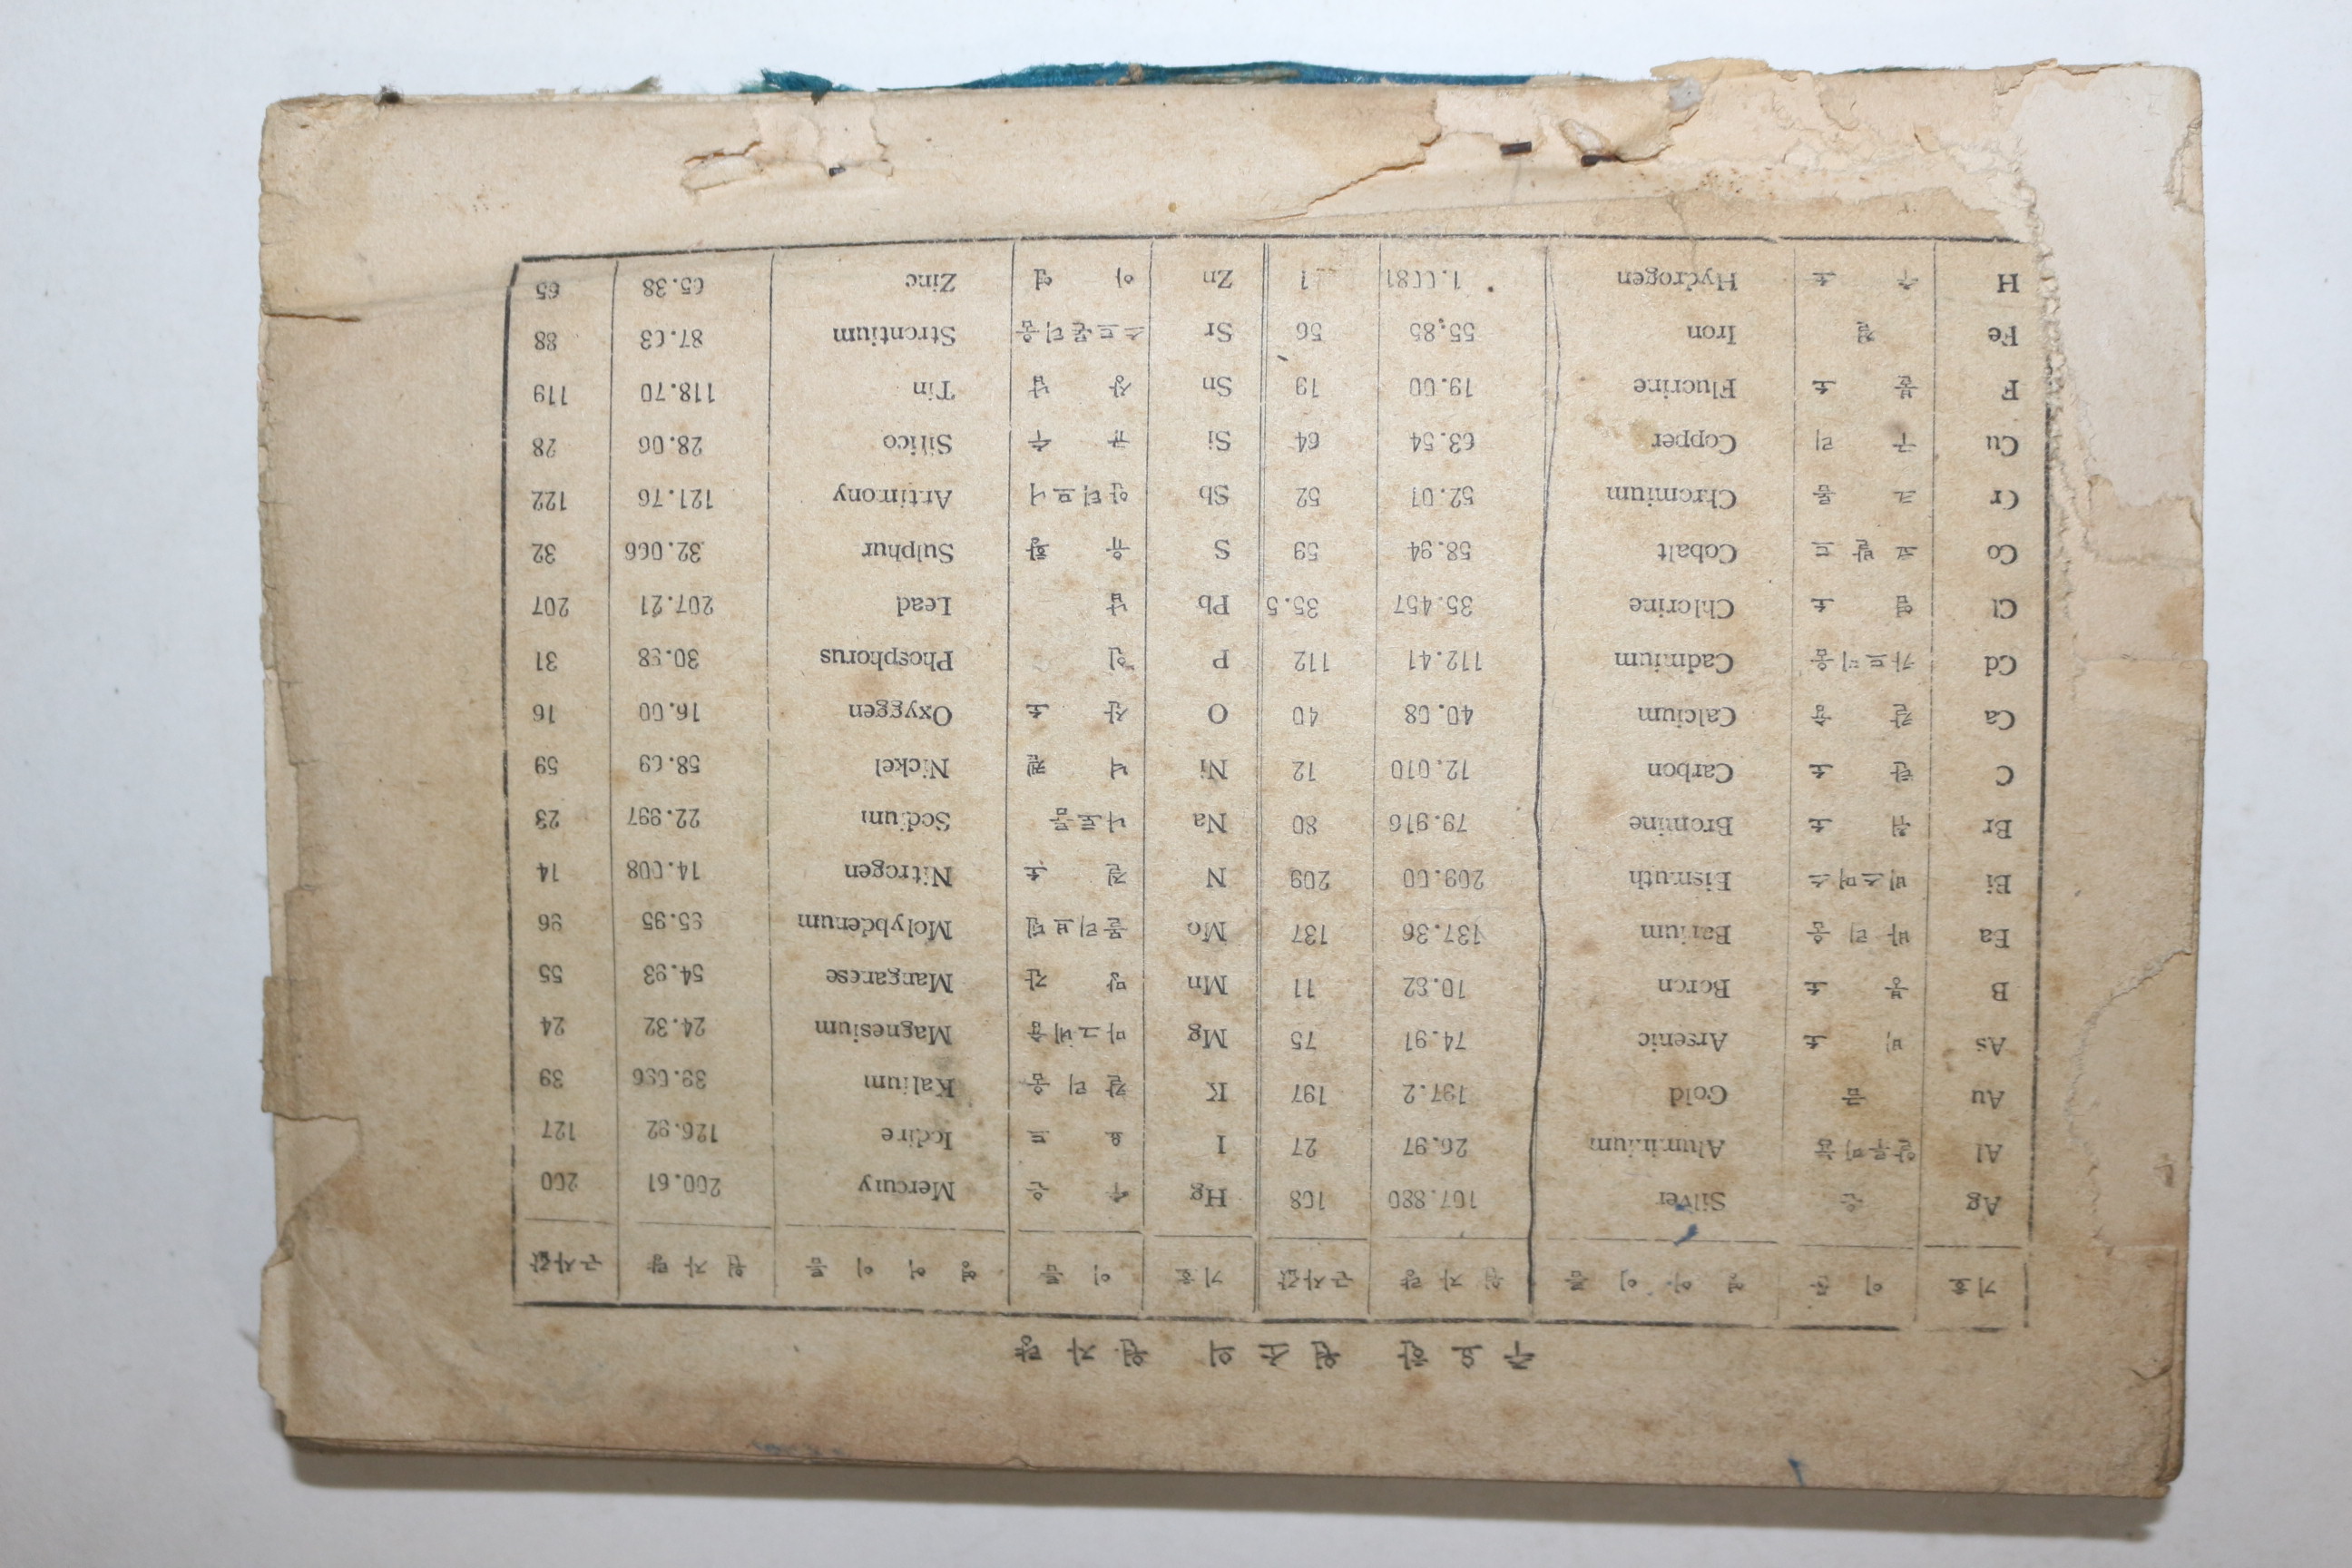 주요한 원소의 원자량
기호 이름 영어이름 원자량 근사값 기호 이름 영어이름 원자량 근사값
Ag 은 Silver 107.880 108 Hg 수은 Mercury 200.61 200
Al 알루미늄 Aluminium 26.97 27 I 요드 Iodine 126.92 127
Au 금 Gold 197.2 197 K 칼리움 Kalium 39.096 39
As 비소 Arsenic 74.91 75 Mg 마그네슘 Magnesium 24.32 24
B 붕소 Boron 10.82 11 Mn 망간 Manganese 54.93 55
Ba 바리움 Barium 137.36 137 Mo 몰리브덴 Molybdenum 95.95 96
Bi 비스머스 Bismuth 209.00 209 N 질소 Nitrogen 14.008 14
Br 취소 Bromine 79.916 80 Na 나트륨 Sodium 22.997 23
C 탄소 Carbon 12.010 12 Ni 닉켈 Nickel 58.69 59
Ca 칼슘 Calcium 40.08 40 O 산소 Oxyggen 16.00 16
Cd 카드미움 Cadmium 112.41 112 P 인 Phosphorus 30.98 31
Cl 염소 Chlorine 35.457 35.5 Pb 납 Lead 207.21 207
Co 코발트 Cobalt 58.94 59 S 유황 Sulphur 32.066 32
Cr 크롬 Chromium 52.01 52 Sb 안티모니 Antimony 121.76 122
Cu 구리 Copper 63.54 64 Si 규수 Silico 28.06 28
F 불소 Fluorine 19.00 19 Sn 상납 Tin 118.70 119
Fe 철 Iron 55.85 56 Sr 스트론티움 Strontium 87.63 88
H 수소 Hydrogen 1.0081 1 Zn 아연 Zinc 65.38 65